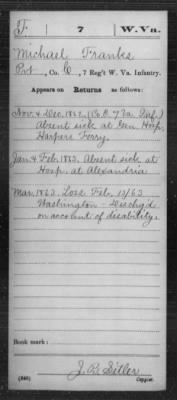 F | 7 | W. Va.
Michael Franks
Pvt, Co. C, 7 Reg't W. Va. Infantry.
Appears on Returns as follows:
Nov. & Dec. 1862. (Co. C 7 Va. Inf.)
Absent sick at Gen. Hosp.
Harpers Ferry.
Jan. & Feb. 1863. Absent sick at
Hosp. at Alexandria
Mar. 1863. Loss Feb. 10/63
Washington - Deschg'd
on account of disability.
Book mark:
(546)
J. R. Sitler
Copyist.